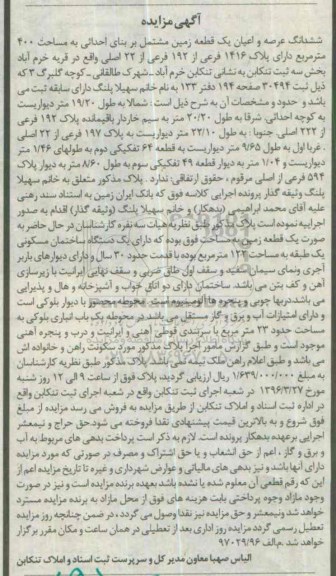 آگهی مزایده
ششدانگ عرصه و اعیان یک قطعه زمین مشتمل بر بنای احداثی به مساحت ۴۰۰
مترمربع دارای پلاک ۱۴۱۶ فرعی از ۱۹۲ فرعی از ۲۲ اصلی واقع در قریه خرم آباد
بخش سه ثبت تنکابن به نشانی تنکابن خرم آباد ـ شهرک طالقانی ـ کوچه گلبرگ ۳ که
ذیل ثبت ۳۰۴۹۴ صفحه ۱۹۴ دفتر ۱۳۳ به نام خانم سهیلا پلنگ دارای سابقه ثبت می
باشد و حدود و مشخصات آن به شرح ذیل است: شمالا به طول ۱۹/۲۰ متر دیواریست
به کوچه احداثی. شرقا به طول ۲۰/۲۰ متر به سیم خاردار باقیمانده پلاک ۱۹۲ فرعی
از ۲۲۲ اصلی. جنوبا: به طول ۲۲/۱۰ متر دیواریست به پلاک ۱۹۷ فرعی از ۲۲ اصلی
. غربا اول به طول ۹/۶۵ متر دیواریست به قطعه ۶۴ تفکیکی دوم به طولهای ۱/۴۶ متر
دیواریست و ۱/۰۴ متر به دیوار قطعه ۴۹ تفکیکی سوم به طول ۸/۶۰ متر به دیوار پلاک
۵۹۴ فرعی از اصلی مرقوم، حقوق ارتفاقی: ندارد. پلاک مذکور متعلق به خانم سهیلا
پلنگ وثیقه گذار پرونده اجرایی کلاسه فوق که بانک ایران زمین به استناد سند رهنی
علیه آقای محمد ابراهیمی (بدهکار) و خانم سهیلا پلنگ (وثیقه گذار) اقدام به صدور
اجراییه نموده است پلاک مذکور طبق نظریه هیأت سه نفره کارشناسان در حال حاضر به
صورت یک قطعه زمین به مساحت فوق بوده که دارای یک دستگاه ساختمان مسکونی
یک طبقه به مساحت ۱۲۲ مترمربع بوده با قدمت حدود ۳۰ سال و دارای دیوارهای باربر
آجری ونمای سیمان سفید و سقف اول طاق ضربی و سقف نهایی ایرانیت با زیرسازی
آهن و کف بتن می باشد. ساختمان دارای دو اتاق خواب و آشپزخانه و هال و پذیرایی
می باشد دربها چوبی و پنجره ها آلومینیوم است. محوطه محصور با دیوار بلوکی است
و دارای امتیازات آب و برق و گاز مستقل می باشد در محوطه یک باب انباری بلوکی به
مساحت حدود ۲۳ متر مربع با سربندی قوطی آهنی و ایرانیت و درب و پنجره آهنی
موجود است و طبق گزارش مامور اجرا پلاک مذکور مورد سکونت راهن و خانواده اش
می باشد و طبق اعلام راهن ملک بیمه نمی باشد. پلاک مذکور طبق نظریه کارشناسان
به مبلغ ۱/۶۳۹/۰۰۰/۰۰۰ ریال ارزیابی گردید، پلاک فوق از ساعت ۹ الی ۱۲ روز شنبه
مورخ ۱۳۹۶/۳/۲۷ در شعبه اجرای ثبت تنکابن واقع در شعبه اجرای ثبت تنکابن واقع
در اداره ثبت اسناد و املاک تنکابن از طریق مزایده به فروش می رسد مزایده از مبلغ
فوق شروع و به بالاترین قیمت پیشنهادی نقدا فروخته می شود.حق حراج و نیمعشر
اجرایی برعهده بدهکار پرونده است. لازم به ذکر است پرداخت بدهی های مربوط به آب
و برق و گاز، اعم از حق انشعاب و یا حق اشتراک و مصرف در صورتی که مورد مزایده
دارای آنها باشد و نیز بدهی های مالیاتی و عوارض شهرداری و غیره تا تاریخ مزایده اعم از
این که رقم قطعی آن معلوم شده یا نشده باشد بعهده برنده مزایده است و نیز در صورت
وجود مازاد وجوه پرداختی بابت هزینه های فوق از محل مازاد به برنده مزایده مسترد
خواهد شد ونیمعشر و حق مزایده نیز نقدا وصول می گردد، در ضمن چنانچه روز مزایده
تعطیل رسمی گردد مزایده روز اداری بعد از تعطیلی در همان ساعت و مکان مقرر برگزار
خواهد شد. م‌الف ۹۷۰۲۹/۹۶
الیاس صهبا معاون مدیر کل و سرپرست ثبت اسناد و املاک تنکابن